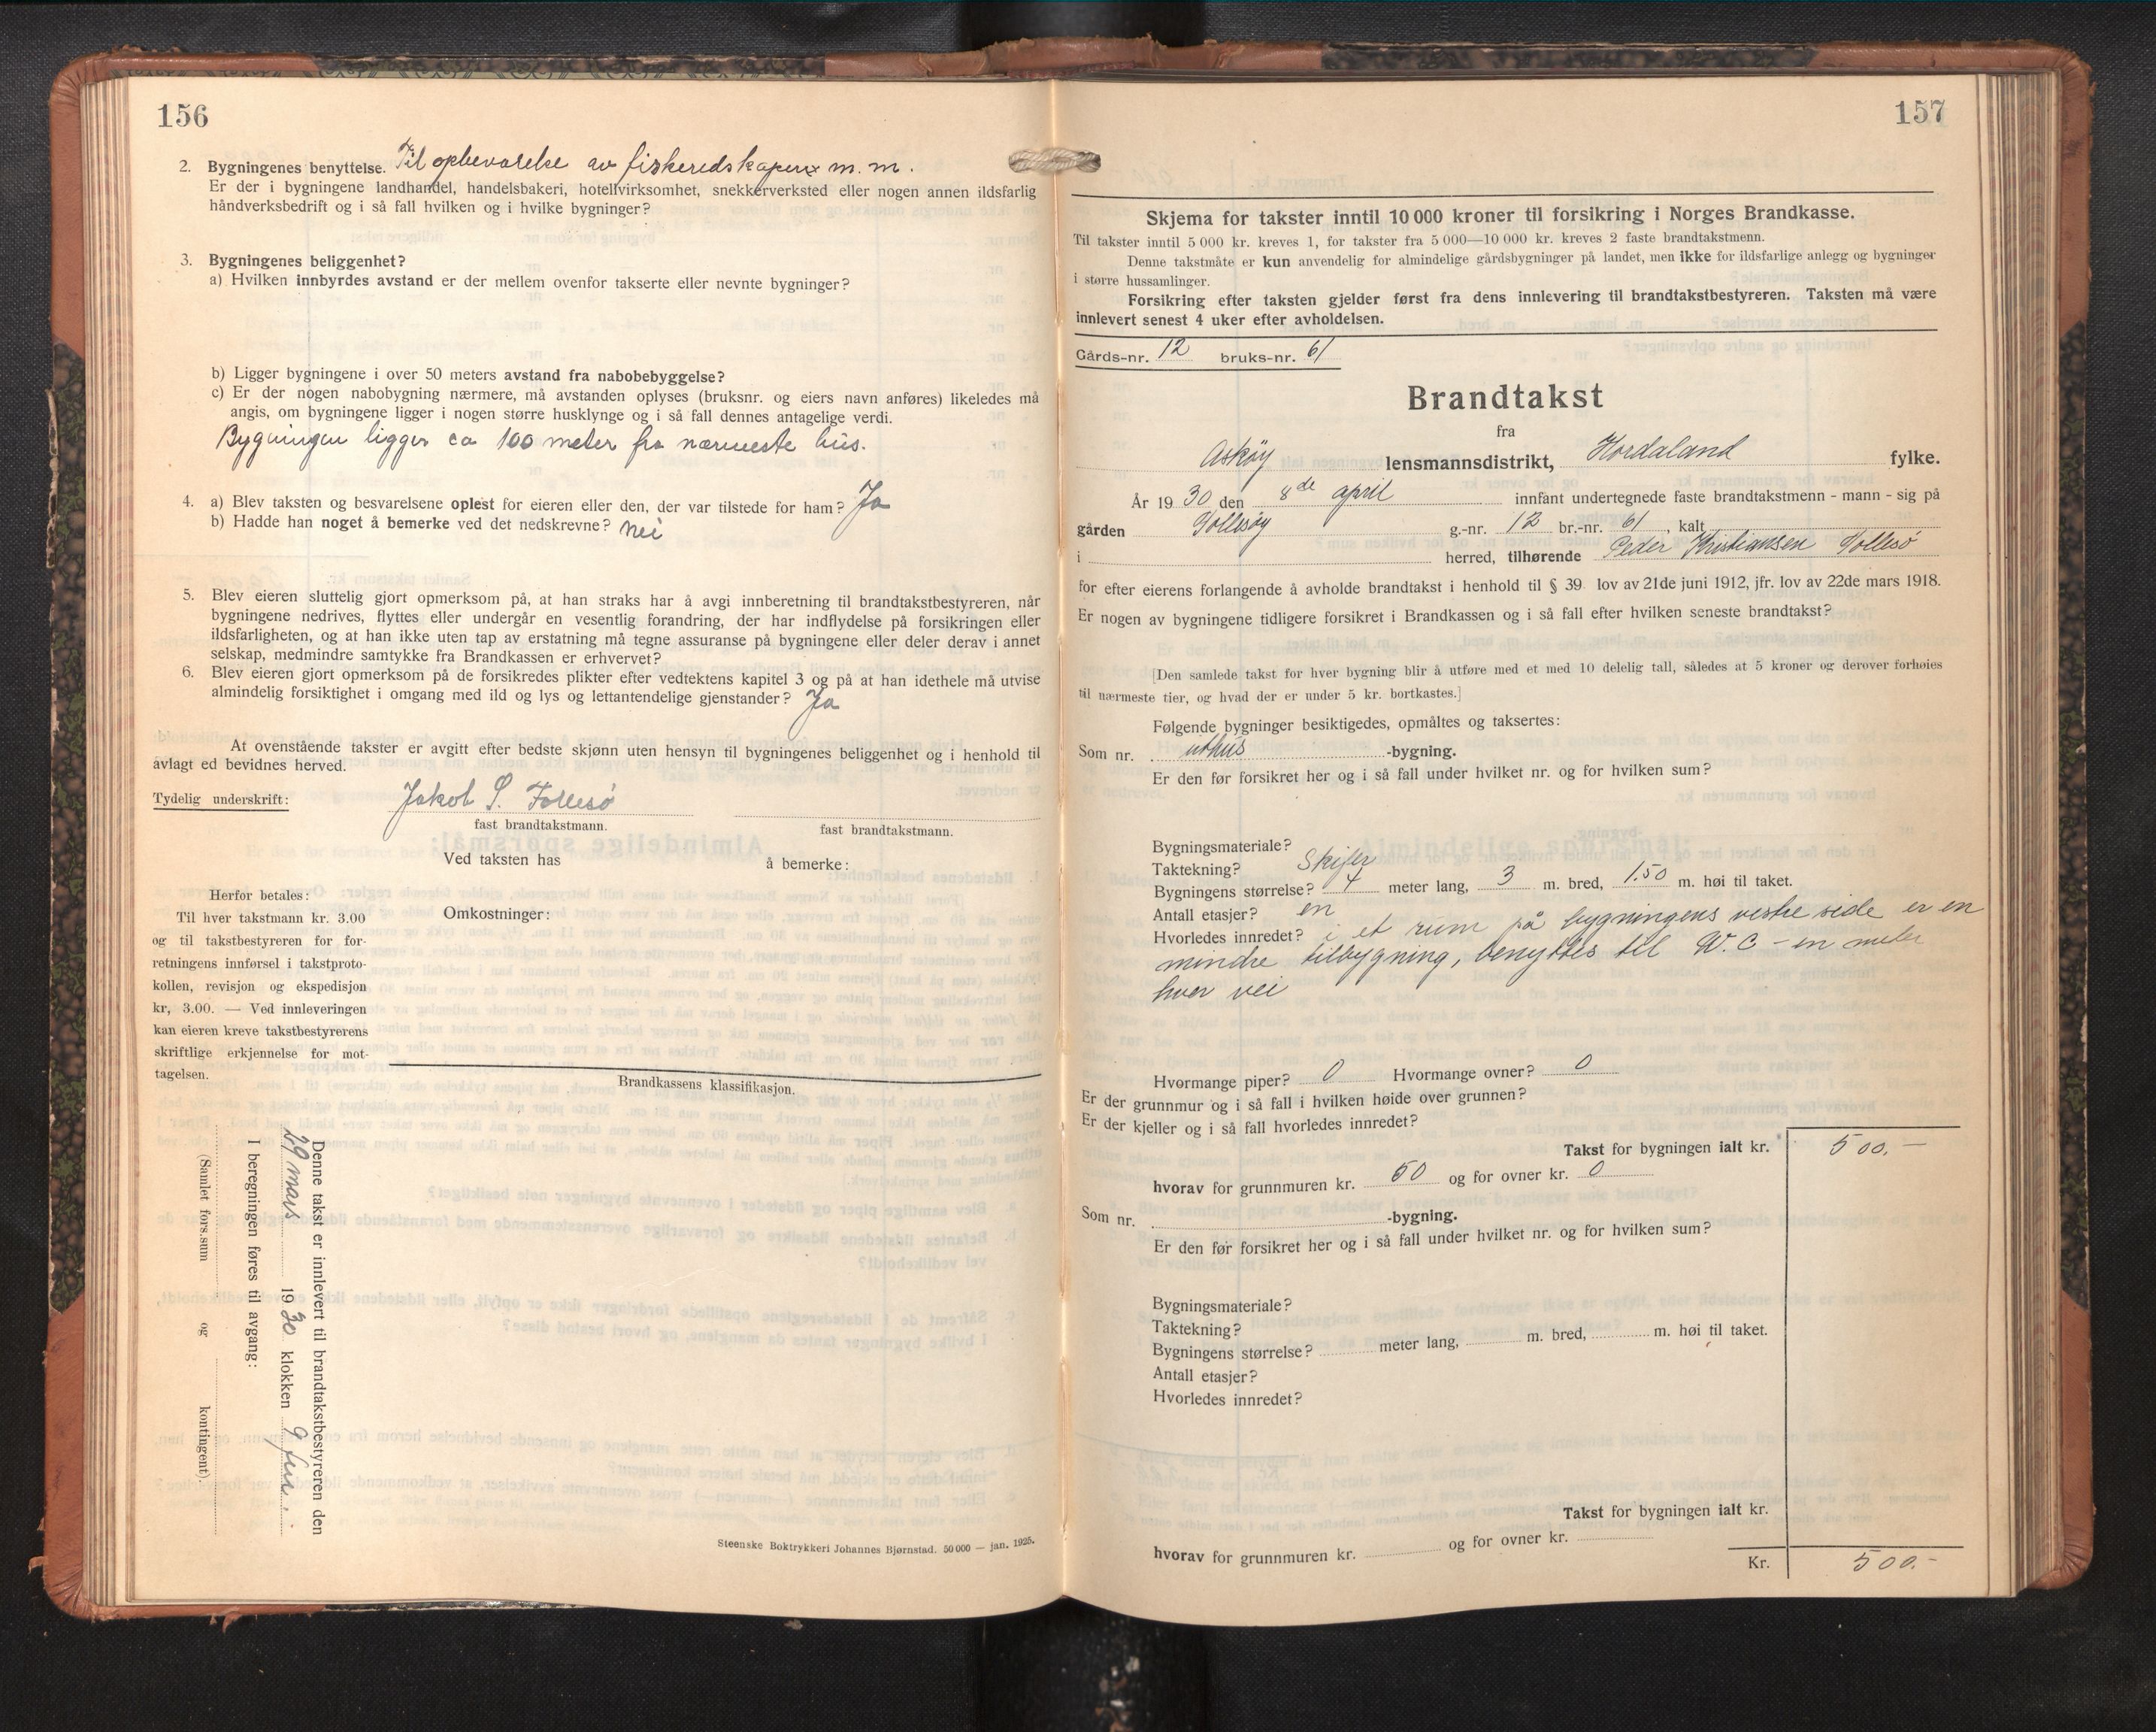 156
2. Bygningenes benyttelse. Til opbevarelse av fiskeredskaper m. m.
Er der i bygningene landhandel, handelsbakeri, hotellvirksomhet, snekkerverksted eller nogen annen ildsfarlig
håndverksbedrift og i så fall hvilken og i hvilke bygninger?
3. Bygningenes beliggenhet?
a) Hvilken innbyrdes avstand er der mellem ovenfor takserte eller nevnte bygninger?
b) Ligger bygningene i over 50 meters avstand fra nabobebyggelse?
c) Er der nogen nabobygning nærmere, må avstanden oplyses (bruksnr. og eiers navn anføres) likeledes må
angis, om bygningene ligger i nogen større husklynge og i så fall dennes antagelige verdi.
Bygningen ligger ca 100 meter fra nærmeste hus.
4. a) Blev taksten og besvarelsene oplest for eieren eller den, der var tilstede for ham? Ja
b) Hadde han noget å bemerke ved det nedskrevne? nei
5. Blev eieren sluttelig gjort opmerksom på, at han straks har å avgi innberetning til brandtakstbestyreren, når
bygningene nedrives, flyttes eller undergår en vesentlig forandring, der har indflydelse på forsikringen eller
ildsfarligheten, og at han ikke uten tap av erstatning må tegne assuranse på bygningene eller deler derav i annet
selskap, medmindre samtykke fra Brandkassen er erhvervet?
6. Blev eieren gjort opmerksom på de forsikredes plikter efter vedtektens kapitel 3 og på at han idethele må utvise
almindelig forsiktighet i omgang med ild og lys og lettantendelige gjenstander? Ja
At ovenstående takster er avgitt efter bedste skjønn uten hensyn til bygningenes beliggenhet og i henhold til
avlagt ed bevidnes herved.
Tydelig underskrift: Jakob S. Follesö
fast brandtakstmann. fast brandtakstmann.
Ved taksten has å bemerke:
Herfor betales:
Til hver takstmann kr. 3.00
og til takstbestyreren for for-
retningens innførsel i takstproto-
kollen, revisjon og ekspedisjon
kr, 3.00. — Ved innleveringen
kan eieren kreve takstbestyrerens
skriftlige erkjennelse for mot-
tagelsen.
Omkostninger:
Brandkassens klassifikasjon.
Denne takst er innlevert til brandtakstbestyreren den
29 mars 1930 klokken 9 fm.
I beregningen føres til avgang:
(Samlet fors.sum og kontingent).
Steenske Boktrykkeri Johannes Bjørnstad. 50 000 — jan. 1925.
157
Skjema for takster inntil 10 000 kroner til forsikring i Norges Brandkasse.
Til takster inntil 5 000 kr. kreves 1, for takster fra 5 000—10 000 kr. kreves 2 faste brandtakstmenn.
Denne takstmåte er kun anvendelig for almindelige gårdsbygninger på landet, men ikke for ildsfarlige anlegg og bygninger
i større hussamlinger.
Forsikring efter taksten gjelder først fra dens innlevering til brandtakstbestyreren. Taksten må være
innlevert senest 4 uker efter avholdelsen.
Gårds-nr. 12 bruks-nr. 61
Brandtakst
fra
Asköy lensmannsdistrikt, Hordaland fylke.
År 1930 den 8de april innfant undertegnede faste brandtakstmenn - mann - sig på
gården Follesöy g.-nr. 12 br.-nr. 61, kalt
i herred, tilhørende Peder Kristiansen Follesö
for efter eierens forlangende å avholde brandtakst i henhold til § 39 lov av 21de juni 1912, jfr. lov av 22de mars 1918.
Er nogen av bygningene tidligere forsikret i Brandkassen og i så fall efter hvilken seneste brandtakst?
[Den samlede takst for hver bygning blir å utføre med et med 10 delelig tall, således at 5 kroner og derover forhøies
til nærmeste tier, og hvad der er under 5 kr. bortkastes.]
Følgende bygninger besiktigedes, opmåltes og taksertes:
Som nr. uthus -bygning.
Er den før forsikret her og i så fall under hvilket nr. og for hvilken sum?
Bygningsmateriale?
Taktekning? Skifer
Bygningens størrelse? 4 meter lang, 3 m. bred, 1.50 m. høi til taket.
Antall etasjer? en
Hvorledes innredet? i et rum på bygningens vestre side er en
mindre tilbygning, benyttes til W.C - en meter
hver vei
Hvormange piper? 0 Hvormange ovner? 0
Er der grunnmur og i så fall i hvilken høide over grunnen?
Er der kjeller og i så fall hvorledes innredet?
Takst for bygningen ialt kr. 500.-
hvorav for grunnmuren kr. 50 og for ovner kr. 0
Som nr. -bygning.
Er den før forsikret her og i så fall under hvilket nr. og for hvilken sum?
Bygningsmateriale?
Taktekning?
Bygningens størrelse? meter lang, m. bred, m. høi til taket.
Antall etasjer?
Hvorledes innredet?
Takst for bygningen ialt kr.
hvorav for grunnmuren kr. og for ovner kr.
Kr. 500.-